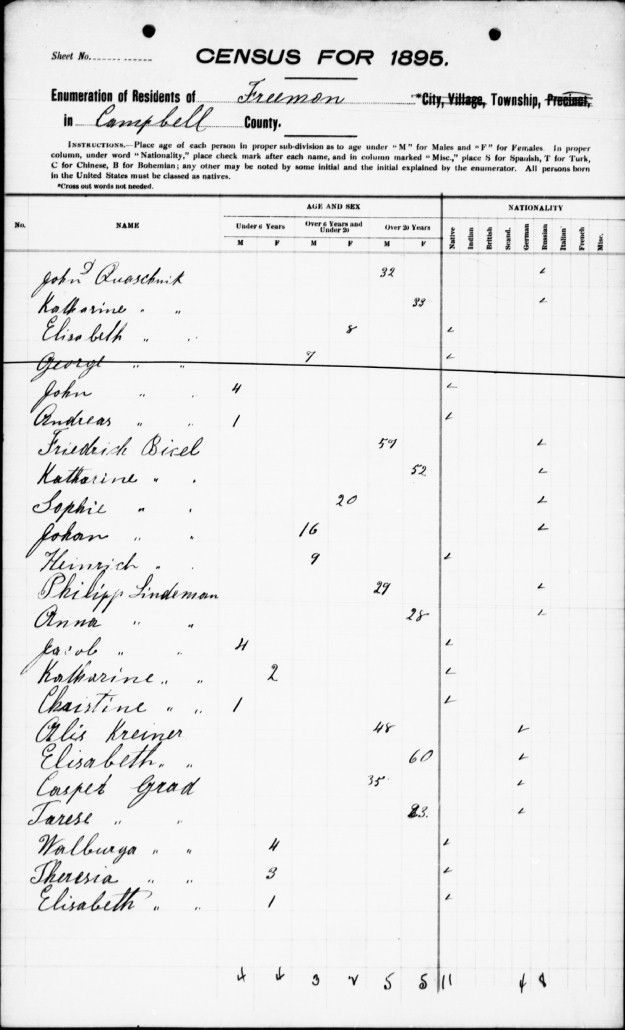 Sheet No.
CENSUS FOR 1895.
Enumeration of Residents of Freemon *City, Village, Township, Precinct,
in Campbell County.
INSTRUCTIONS.—Place age of each person in proper sub-division as to age under "M" for Males and "F" for Females. In proper
column, under word "Nationality," place check mark after each name, and in column marked "Misc.," place S for Spanish, T for Turk,
C for Chinese, B for Bohemian; any other may be noted by some initial and the initial explained by the enumerator. All persons born
in the United States must be classed as natives.
*Cross out words not needed.
AGE AND SEX NATIONALITY
No. NAME Under 6 Years Over 6 Years and Under 20 Over 20 Years
M F M F M F Native Indian British Scand. German Russian Italian French Misc.
John Quaschnik 32 ✓
Katharine " " 33 ✓
Elisabeth " " 8 ✓
George " " 7 ✓
John " " 4 ✓
Andreas " " 1 ✓
Friedrich Bicel 57 ✓
Katharine " " 52 ✓
Sophie " " 20 ✓
Johan " " 16 ✓
Heinrich " " 9 ✓
Philipp Lindeman 29 ✓
Anna " " 28 ✓
Jacob " " 4 ✓
Katharine " " 2 ✓
Christine " " 1 ✓
Alis Kreiner 48 ✓
Elisabeth " " 60 ✓
Casper Grad 35 ✓
Tarese " " 23 ✓
Walburga " " 4 ✓
Theresia " " 3 ✓
Elisabeth " " 1 ✓
4 4 3 2 5 5 11 4 8